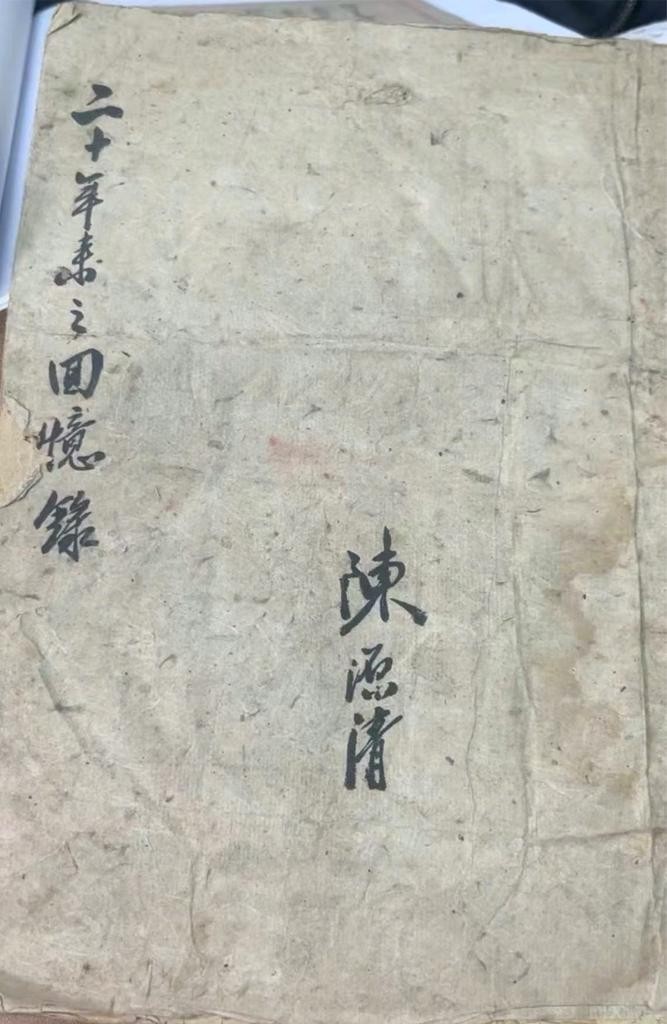 二十年来之回憶錄
陳源清